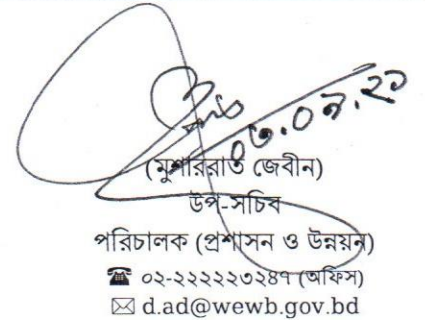 ০৩.০৯.২১
(মুশাররাত জেবীন)
উপ-সচিব
পরিচালক (প্রশাসন ও উন্নয়ন)
☎ ০২-২২২২২৩২৪৭ (অফিস)
✉ d.ad@wewb.gov.bd